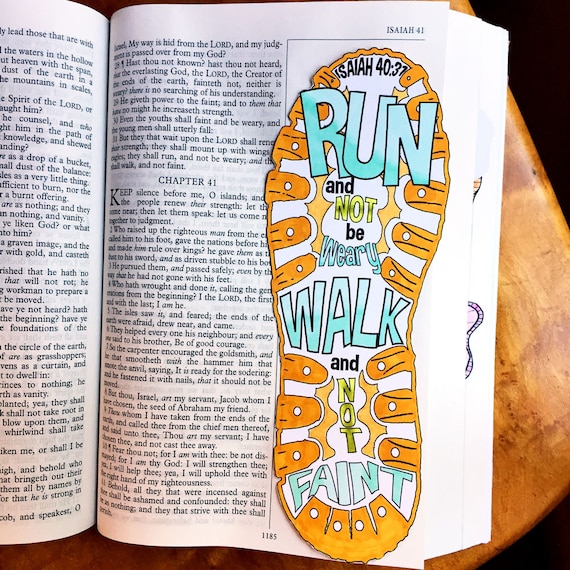 ly lead those that are with
d the waters in the hollow
out heaven with the span,
dust of the earth in a
the mountains in scales,
e Spirit of the LORD, or
aught him?
he counsel, and who
ght him in the path of
knowledge, and shewed
anding?
are as a drop of a bucket,
small dust of the balance:
isles as a very little thing.
ufficient to burn, nor the
r a burnt offering.
are as nothing; and they
an nothing, and vanity.
ye liken God? or what
nto him?
a graven image, and the
er with gold, and casteth
ished that he hath no
that will not rot; he
ing workman to prepare a
t be moved.
ave ye not heard? hath
he beginning? have ye
he foundations of the
n the circle of the earth,
are as grasshoppers;
vens as a curtain, and
t to dwell in:
rinces to nothing; he
arth as vanity.
lanted; yea, they shall
ck shall not take root in
blow upon them, and
whirlwind shall take
ken me, or shall I be
nigh, and behold who
at bringeth out their
them all by names by
or that he is strong in
acob, and speakest, O
ISAIAH 41
Israel, My way is hid from the LORD, and my judg-
ment is passed over from my God?
28 ¶ Hast thou not known? hast thou not heard,
the everlasting God, the LORD, the Creator of
the ends of the earth, fainteth not, neither is
weary? there is no searching of his understanding.
29 He giveth power to the faint; and to them that
have no might he increaseth strength.
30 Even the youths shall faint and be weary, and
young men shall utterly fall:
31 But they that wait upon the LORD shall
their strength; they shall mount up with wings
eagles; they shall run, and not be weary; and
walk, and not faint.
CHAPTER 41
KEEP silence before me, O islands; and
the people renew their strength: let
come near; then let them speak: let us come
together to judgment.
2 Who raised up the righteous man from the
called him to his foot, gave the nations before
and made him rule over kings? he gave them as
dust to his sword, and as driven stubble to his bow
3 He pursued them, and passed safely; even by
way that he had not gone with his feet.
4 Who hath wrought and done it, calling the gen
erations from the beginning? I the LORD, the first
and with the last; I am he.
5 The isles saw it, and feared; the ends of the
earth were afraid, drew near, and came.
6 They helped every one his neighbour; and every
one said to his brother, Be of good courage.
7 So the carpenter encouraged the goldsmith, and
he that smootheth with the hammer him that
smote the anvil, saying, It is ready for the sodering:
and he fastened it with nails, that it should not be
moved.
8 But thou, Israel, art my servant, Jacob whom I
have chosen, the seed of Abraham my friend.
9 Thou whom I have taken from the ends of the
earth, and called thee from the chief men thereof,
and said unto thee, Thou art my servant; I have
chosen thee, and not cast thee away.
10 ¶ Fear thou not; for I am with thee: be not dis-
mayed; for I am thy God: I will strengthen thee;
yea, I will help thee; yea, I will uphold thee with
the right hand of my righteousness.
11 Behold, all they that were incensed against
thee shall be ashamed and confounded: they shall
be as nothing; and they that strive with thee shall
1185
ISAIAH 40:31
RUN
and
NOT
be
Weary
WALK
and
NOT
FAINT